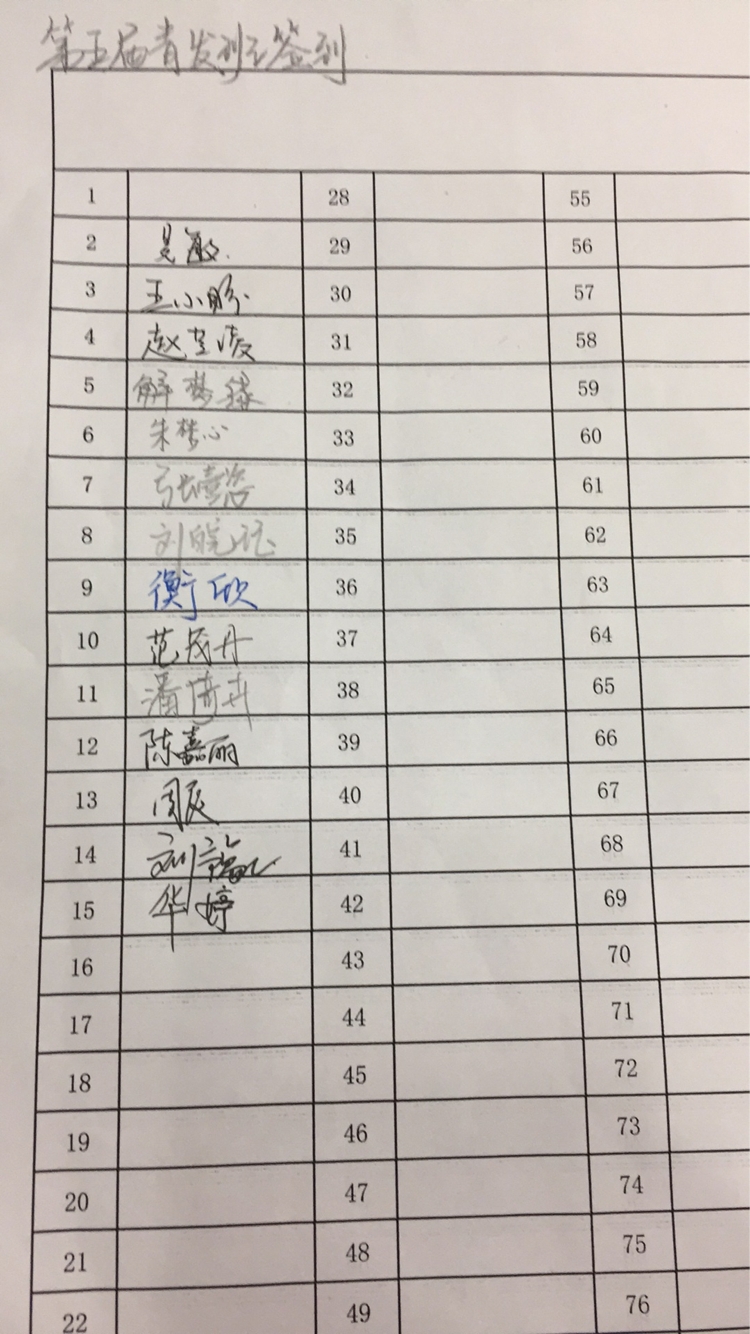 第五届青发到之签到
1 28 55
2 吴敏 29 56
3 王小胳 30 57
4 赵 31 58
5 解梦 32 59
6 朱梦心 33 60
7 张 34 61
8 刘皖 35 62
9 衡欣 36 63
10 范茂丹 37 64
11 潘 38 65
12 陈嘉丽 39 66
13 周辰 40 67
14 刘 41 68
15 华婷 42 69
16 43 70
17 44 71
18 45 72
19 46 73
20 47 74
21 48 75
22 49 76